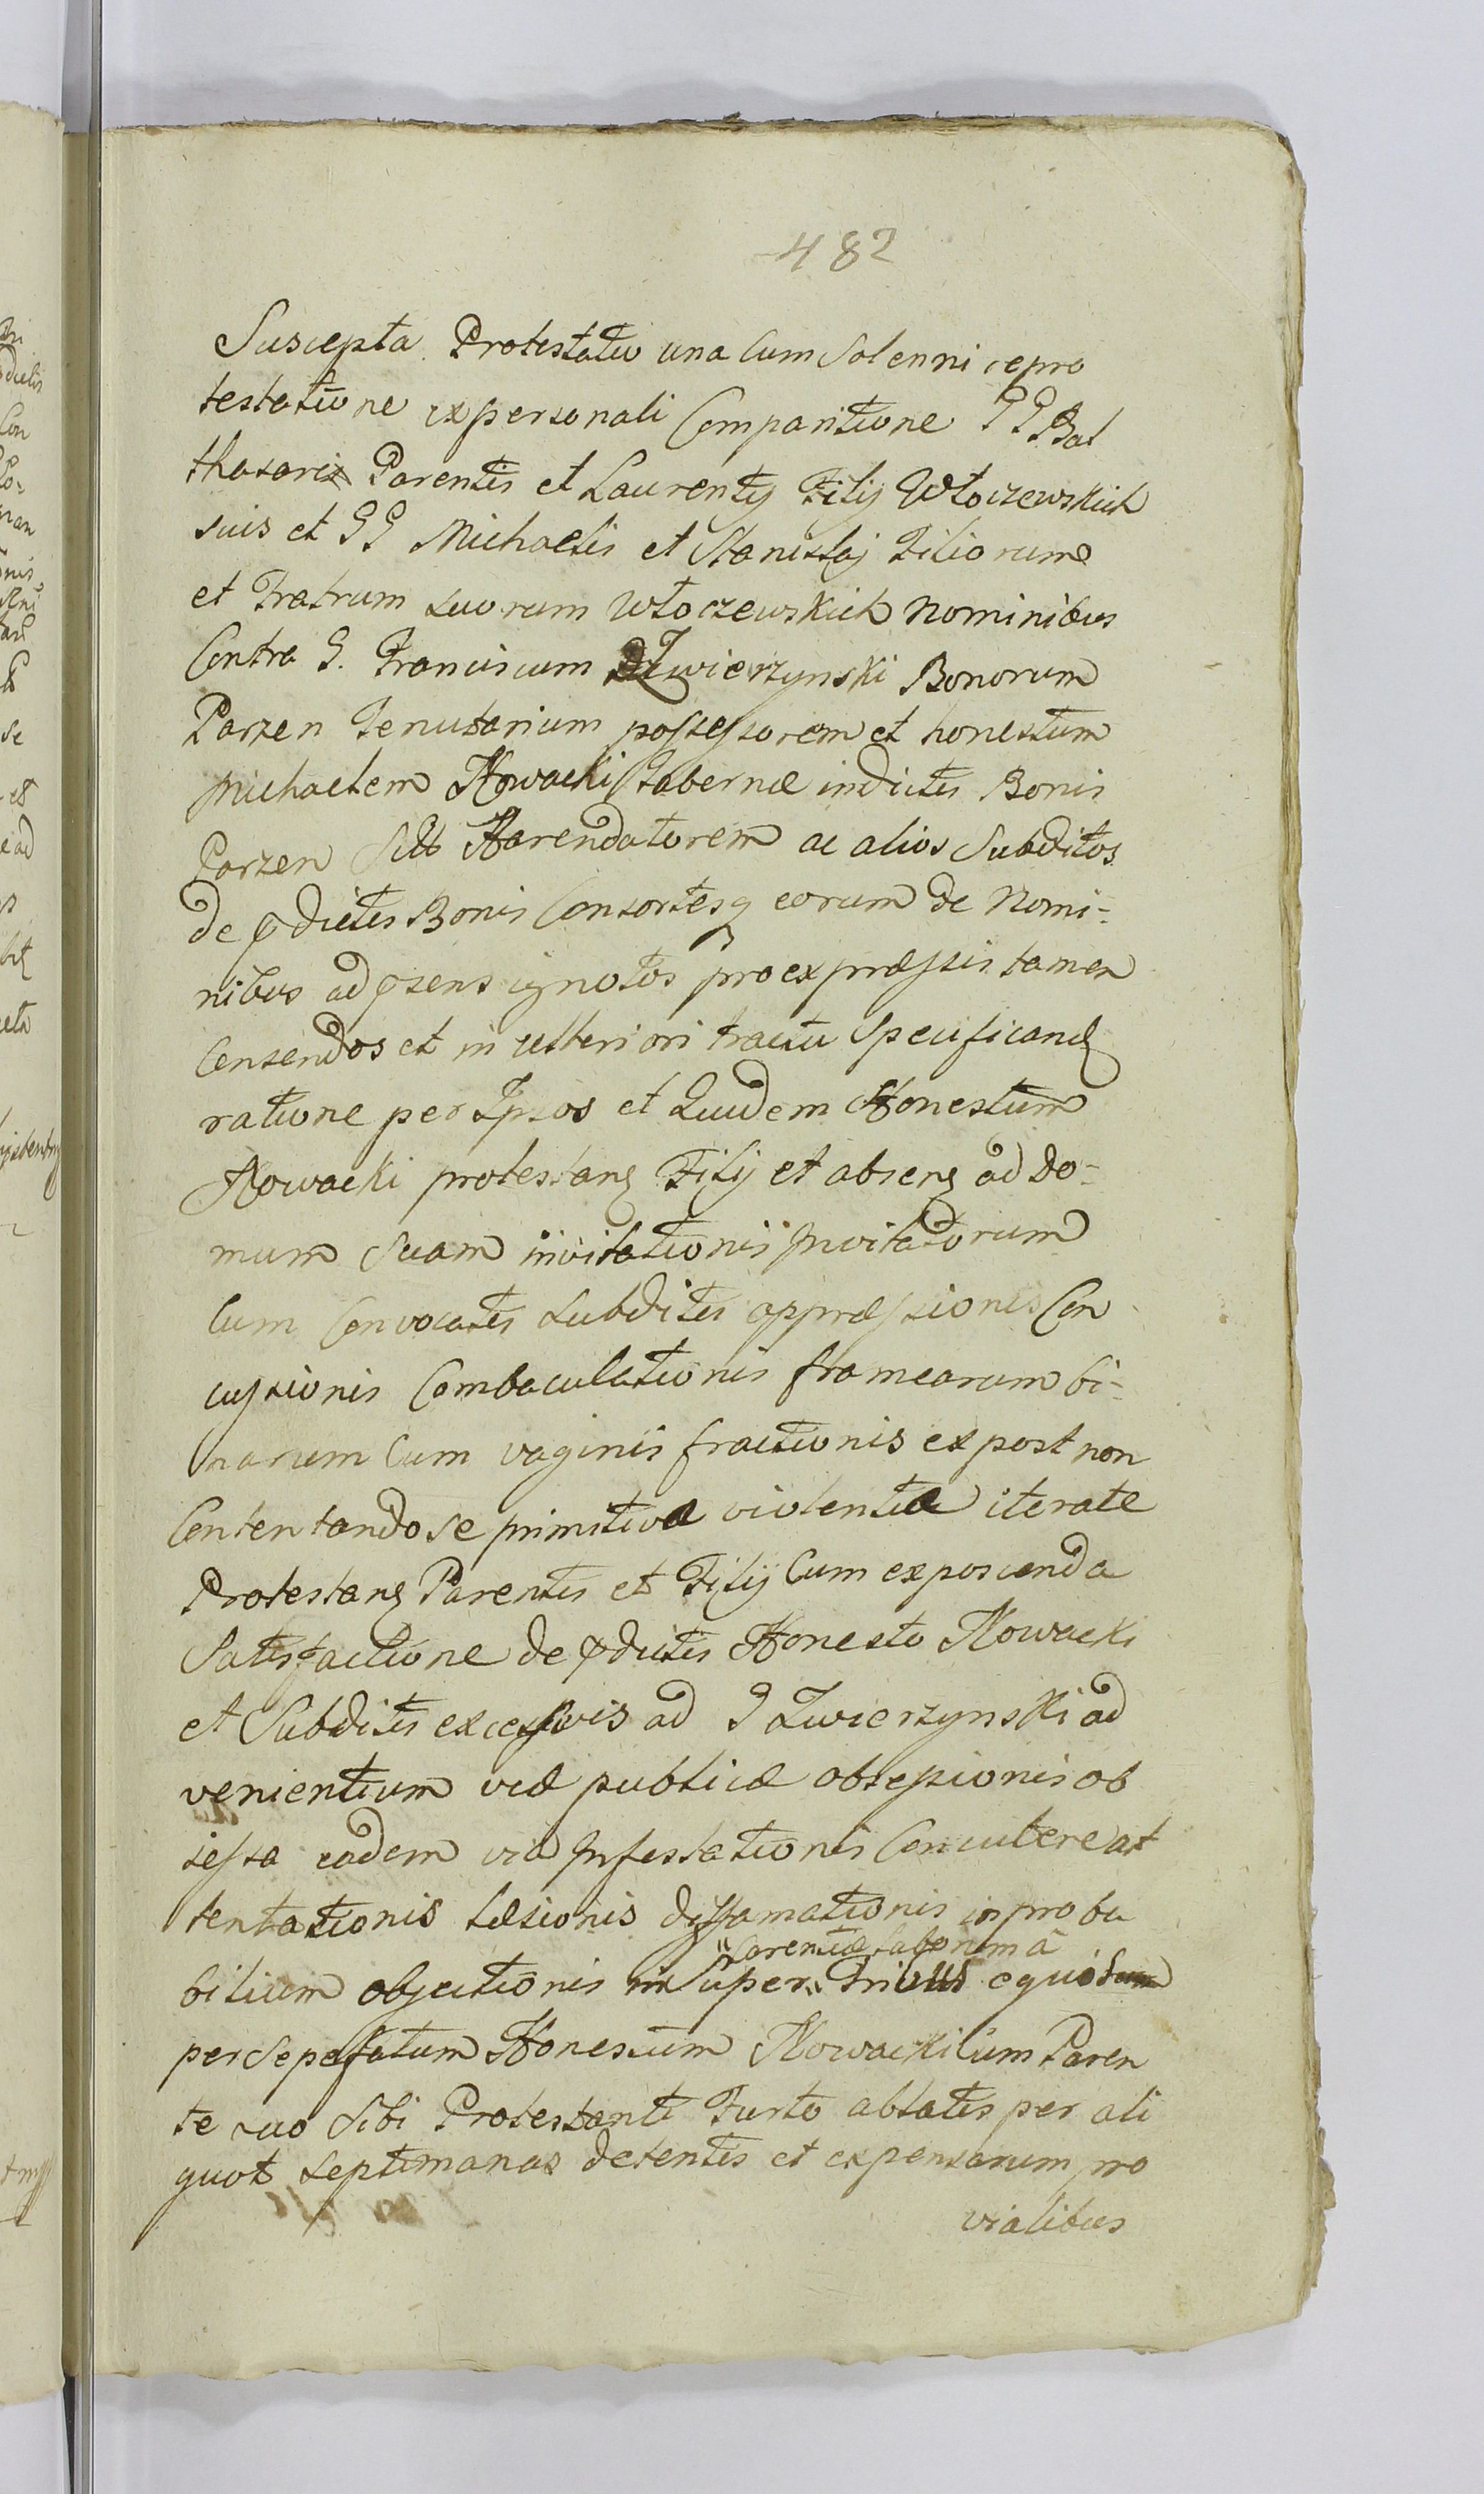 482
Suscepta Protestatio una Cum Solenni repro
testatione ex personali Comparitione GG Bal
thasaris Parentis et Laurentij Filij Włoczewskich
suis et GG Michaelis et Stanislaj Filiorum
et Fratrum suorum Włoczewskich Nominibus
Contra G. Franciscum Zwierzynski Bonorum
Parzen Tenutarium possessorem et honestum
Michaelem Nowacki Tabernæ in dictis Bonis
Parzen Sitt Harendatorem ac alios Subditos
de pdictis Bonis Consortesq eorum de Nomi-
nibus ad psens ignotos pro expræssis tamen
Censendos et in ulteriori tractu Specificand
ratione per Ipsos et Quidem Honestum
Nowacki protestang Filij et absens ad Do-
mum Suam invitationis Invitatorum
Cum Convocatis Subditis oppræssionis Con
cussionis Combaculationis framearum bi-
narum Cum vaginis fractionis ex post non
Contentando se primitiva violentia iterate
Protestang Parentis et Filij Cum exposcenda
Satisfactione de pdictis Honesto Nowacki
et Subditis excessivis ad G Zwierzynski ad
venientium viæ publicæ obsessionis ob
sessa eadem via Infestationis Concutere at
tentationis Læsionis diffamationis inproba
bilium objectionis in Super Tribus equis
Carentiæ laborum a
per sepefatum Honestum Nowacki Cum Paren
te suo Sibi Protestanti Furto ablatis per ali
quot Septimanas detentis et expensarum pro
vialibus